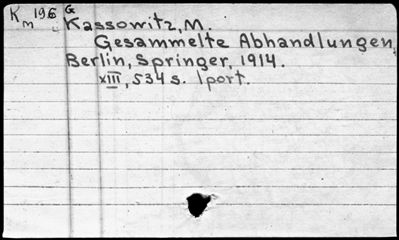 K 196 G
M
Kassowitz, M.
Gesammelte Abhandlungen,
Berlin, Springer, 1914.
XIII, 534 s. 1port.